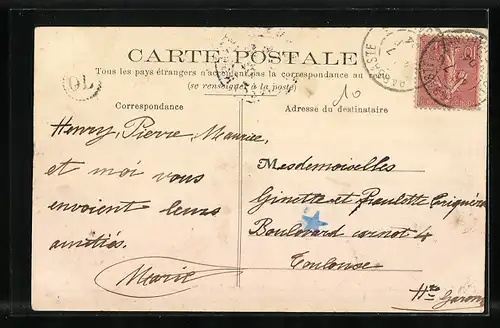 CARTE POSTALE
Tous les pays étrangers n'acceptent pas la correspondance au recto
(se renseigner à la poste)
10
Correspondance
Adresse du destinataire
Henry, Pierre, Maurice,
et moi vous
envoient leurs
amitiés.
Marie
Mesdemoiselles
Ginette et Paulotte
Boulevard carnot 4
Toulouse
Hte Garonne